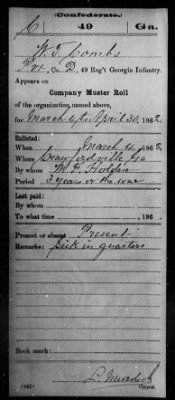 Confederate.
C 49 Ga.
W. T. Combs
Pvt, Co. D, 49 Reg't Georgia Infantry.
Appears on
Company Muster Roll
of the organization named above,
for March 4 to April 30, 1862
Enlisted:
When March 4, 1862
Where Crawfordville Ga
By whom M. F. Holden
Period 3 years or the war
Last paid:
By whom
To what time , 186 .
Present or absent Present
Remarks: sick in quarters
Book mark:
Copyist.